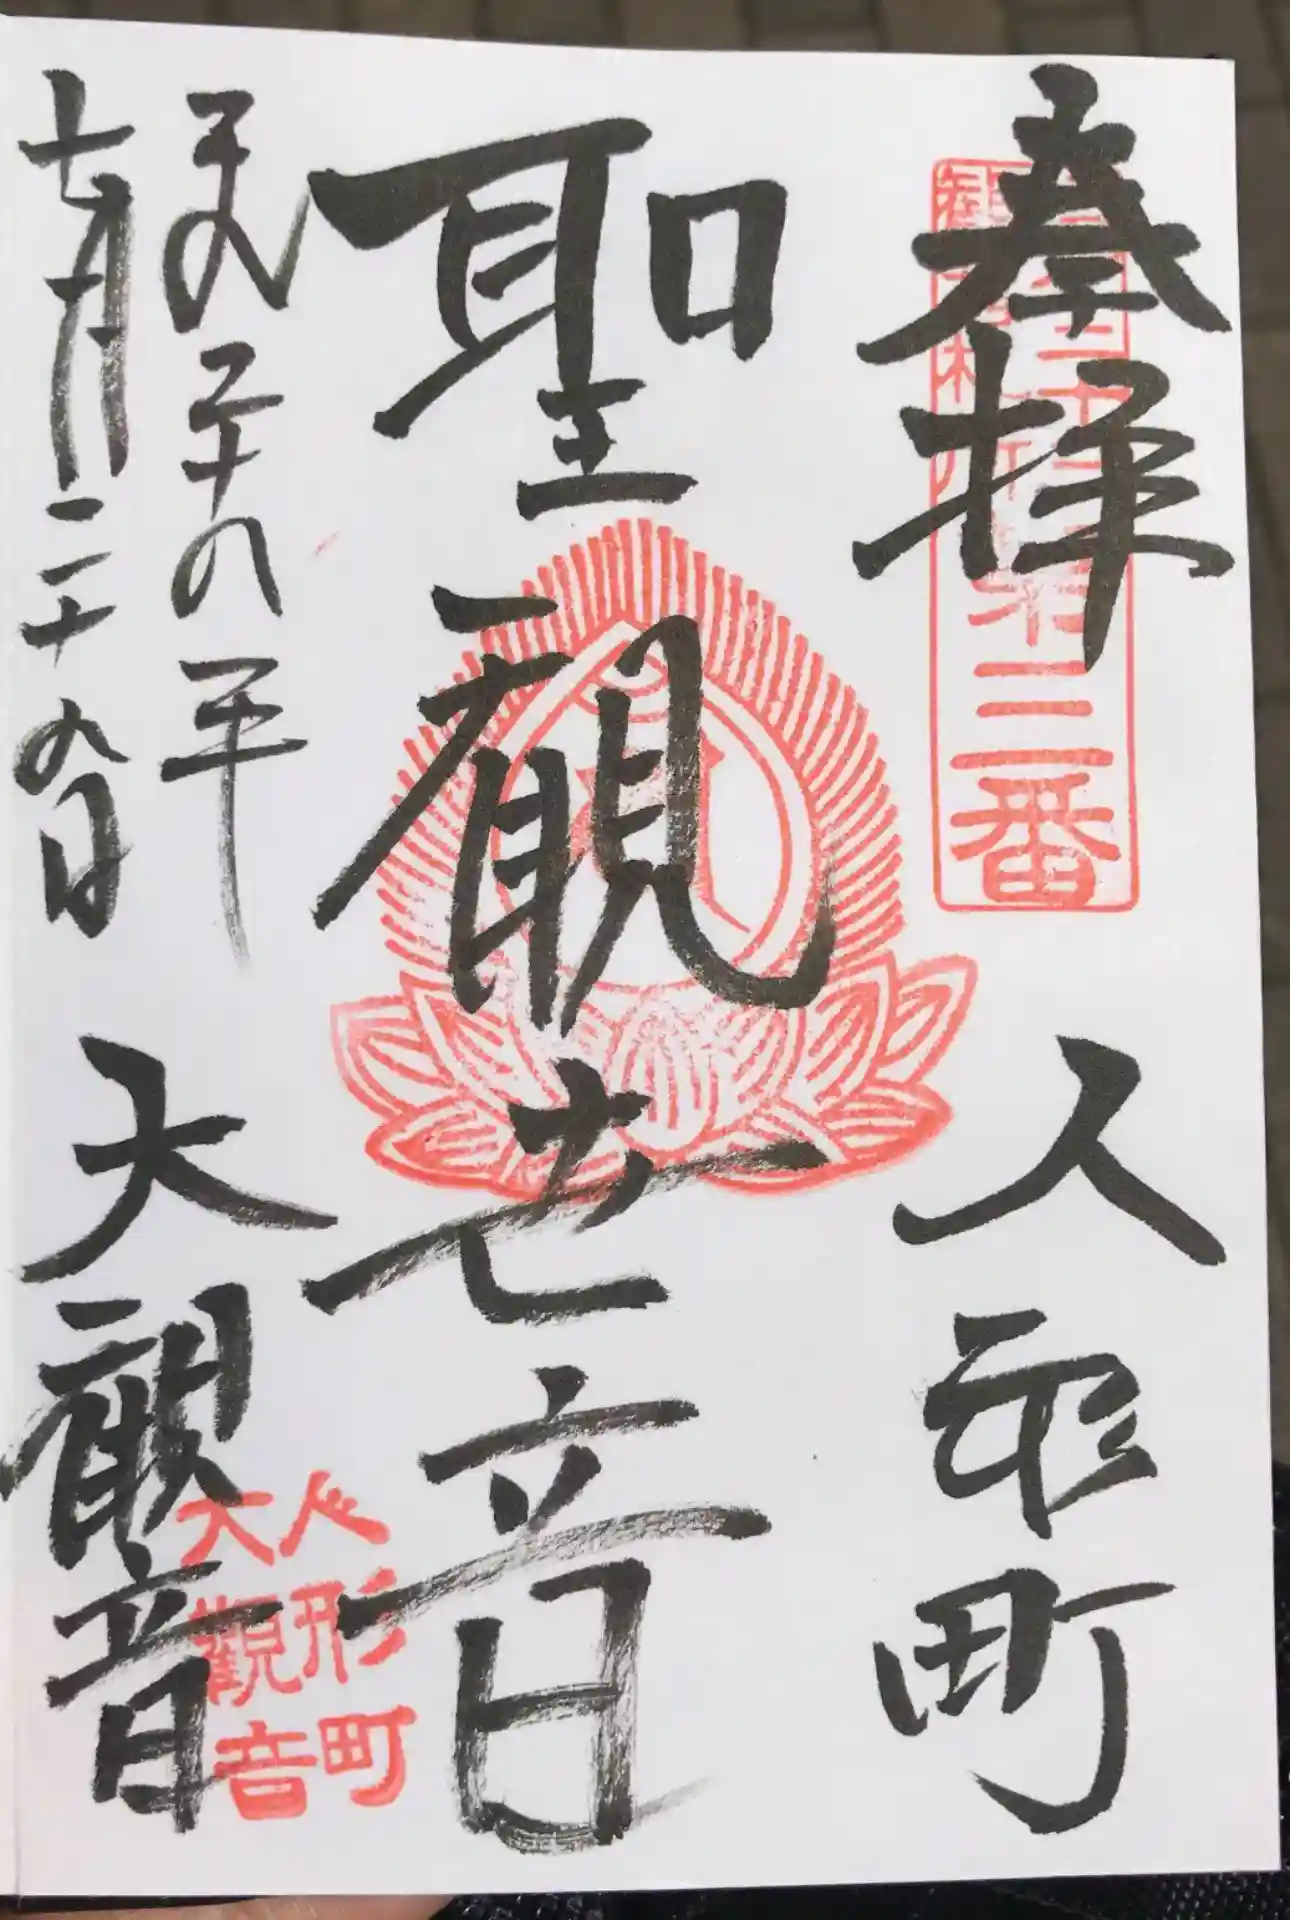 奉拝
人形町
聖観世音
平成三十年
七月二十九日
大観音
第三番
人形町
大観音